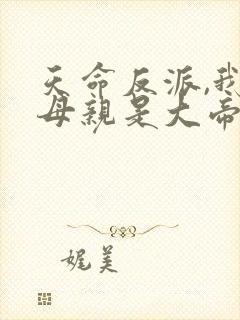 天命反派,我
母親是大帝
娓美